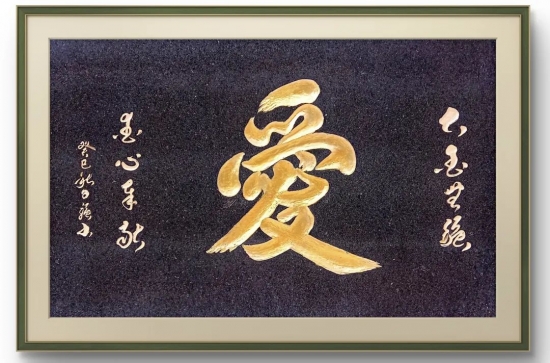 大爱无疆
愛
爱心奉献
癸巳秋